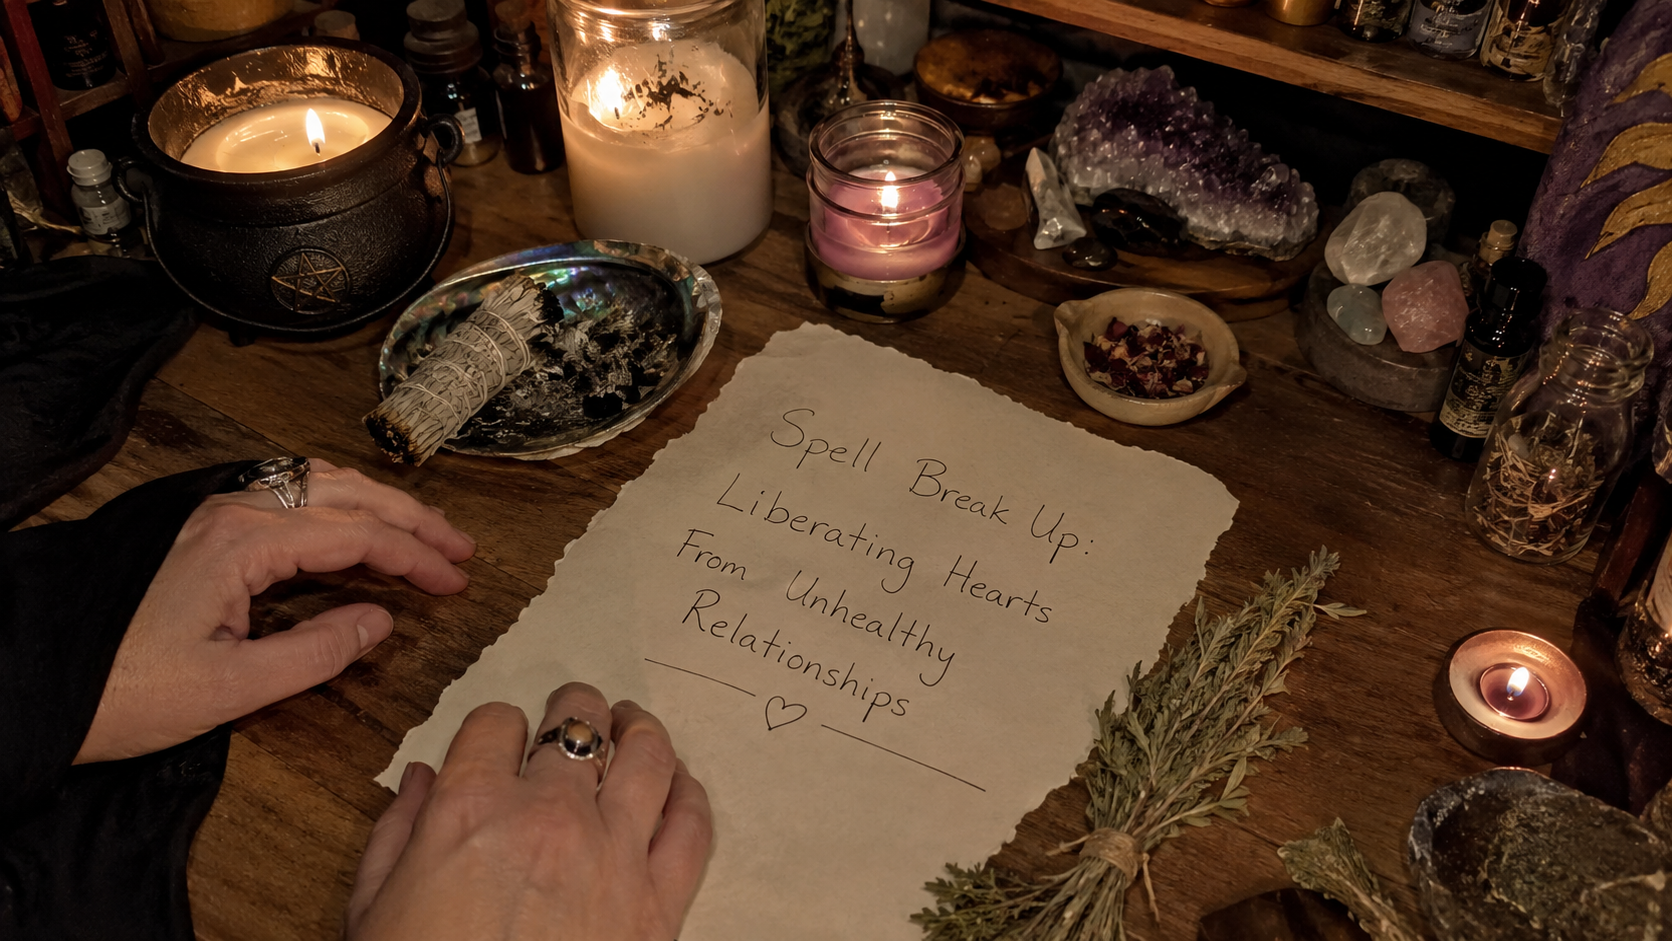 Spell Break Up:
Liberating Hearts
From Unhealthy
Relationships